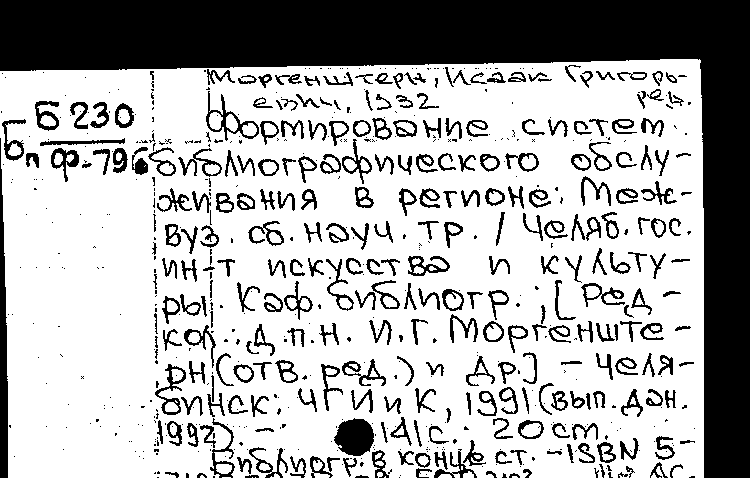 Моргенштерн, Исаак Григорь-
евич, 1932 ред.
Б 230
Бп Ф-796
Формирование систем
библиографического обслу-
живания в регионе: Меж-
вуз. сб. науч. тр. / Челяб. гос.
ин-т искусства и культу-
ры. Каф. библиогр.; [Ред-
кол.: д.п.н. И.Г. Моргенште-
рн (отв. ред.) и др.] - Челя-
бинск: ЧГИиК, 1991 (вып. дан.
1992). - 141 с.; 20 см.
Библиогр. в конце ст. - ISBN 5-